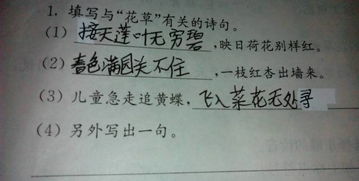 1. 填写与“花草”有关的诗句。
(1) 接天莲叶无穷碧,映日荷花别样红。
(2) 春色满园关不住,一枝红杏出墙来。
(3) 儿童急走追黄蝶,飞入菜花无处寻
(4) 另外写出一句。